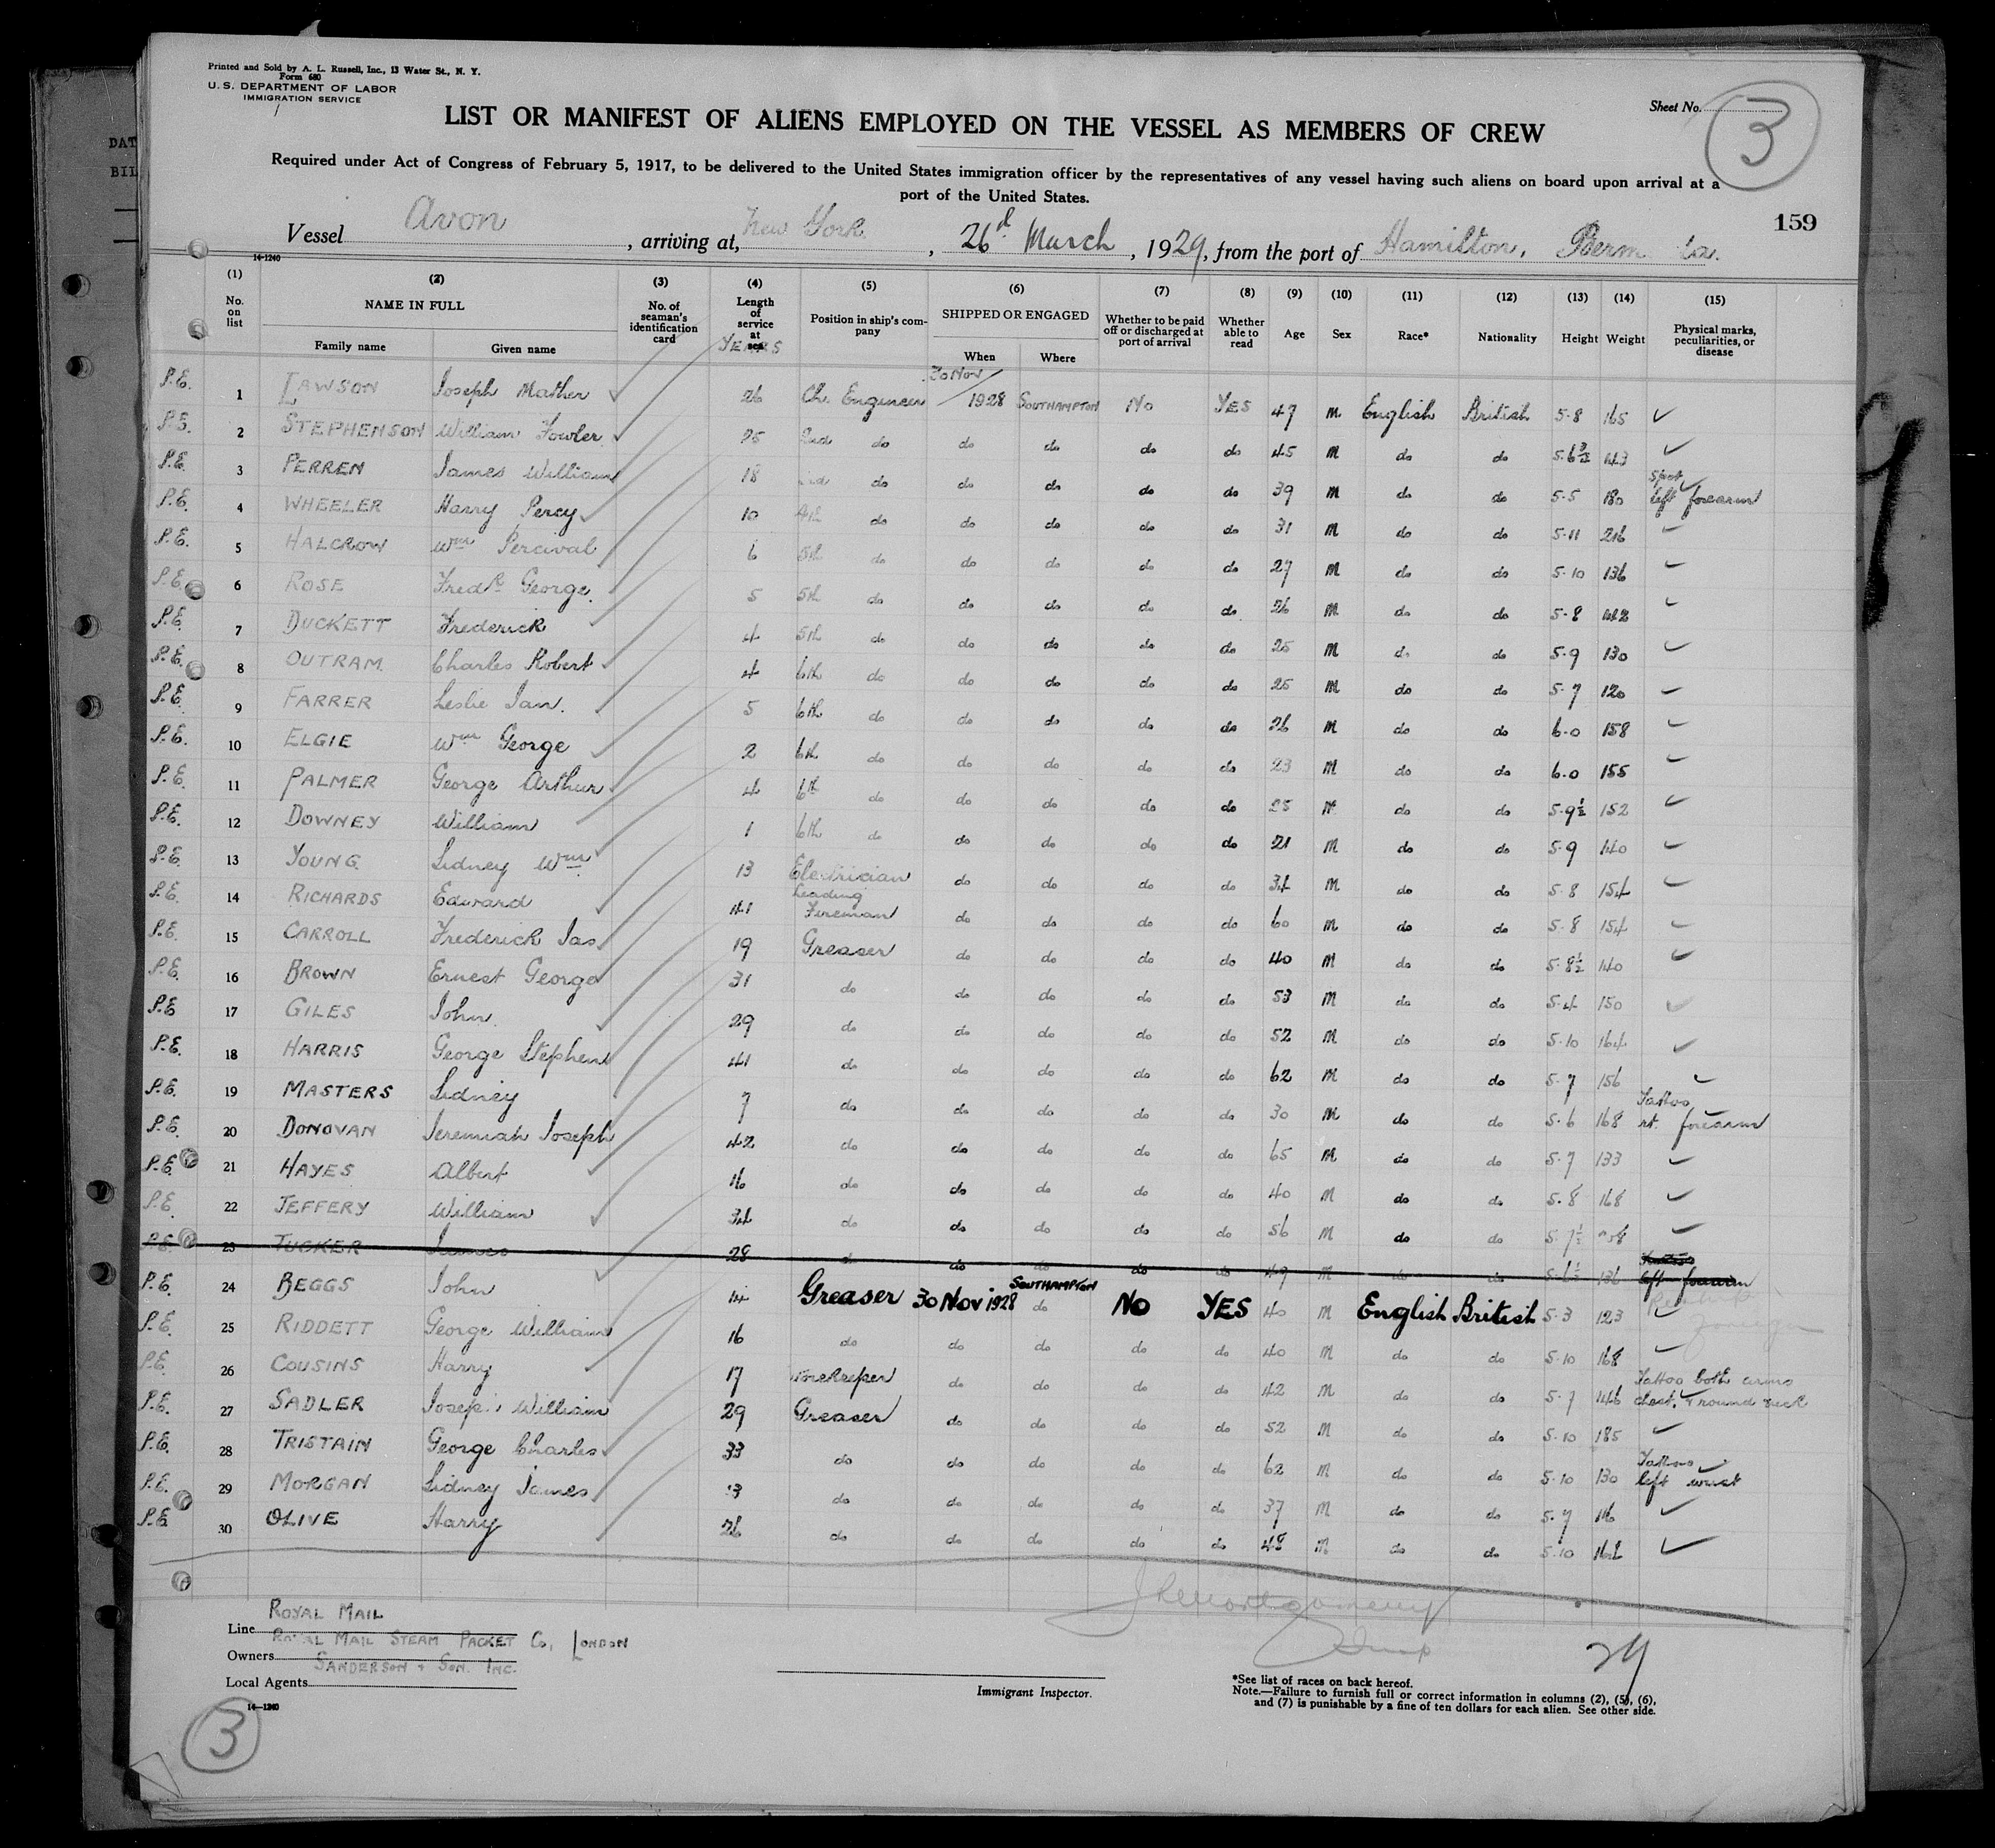 Printed and Sold by A. L. Russell, Inc., 13 Water St., N. Y.
Form 680
U. S. DEPARTMENT OF LABOR
IMMIGRATION SERVICE
Sheet No. 3
LIST OR MANIFEST OF ALIENS EMPLOYED ON THE VESSEL AS MEMBERS OF CREW
Required under Act of Congress of February 5, 1917, to be delivered to the United States immigration officer by the representatives of any vessel having such aliens on board upon arrival at a
port of the United States.
159
Vessel Avon, arriving at, New York, 26th March, 1929, from the port of Hamilton,
14-1240
(1) (2) (3) (4) (5) (6) (7) (8) (9) (10) (11) (12) (13) (14) (15)
No. on list NAME IN FULL No. of seaman's identification card Length of service at sea YEARS Position in ship's company SHIPPED OR ENGAGED Whether to be paid off or discharged at port of arrival Whether able to read Age Sex Race* Nationality Height Weight Physical marks, peculiarities, or disease
Family name Given name When Where
P.E. 1 LAWSON Joseph Mather 26 Ch. Engineer 30 Nov 1928 SOUTHAMPTON No YES 47 M English British 5-8 165
P.E. 2 STEPHENSON William Fowler 25 2nd do do do do do 45 M do do 5.6½ 143
P.E. 3 PERREN James William 18 do do do do do 39 M do do 5-5 180 Spot left forearm
P.E. 4 WHEELER Harry Percy 10 4th do do do do do 31 M do do 5-11 216
P.E. 5 HALCROW Wm Percival 6 5th do do do do do 27 M do do 5-10 136
P.E. 6 ROSE Fredk George 5 5th do do do do do 26 M do do 5-8
P.E. 7 DUCKETT Frederick 4 5th do do do do do 25 M do do 5-9 130
P.E. 8 OUTRAM Charles Robert 4 6th do do do do do 25 M do do 5-7 120
P.E. 9 FARRER Leslie Ian 5 6th do do do do do 26 M do do 6-0 158
P.E. 10 ELGIE Wm George 2 6th do do do do do 23 M do do 6-0 155
P.E. 11 PALMER George Arthur 4 6th do do do do do 25 M do do 5-9½ 152
P.E. 12 DOWNEY William 1 6th do do do do do 21 M do do 5-9 140
P.E. 13 YOUNG Sidney Wm 13 Electrician do do do do 34 M do do 5-8 154
P.E. 14 RICHARDS Edward 41 Leading Fireman do do do do 60 M do do 5-8 154
P.E. 15 CARROLL Frederick Jas 19 Greaser do do do do 40 M do do 5-8½ 140
P.E. 16 BROWN Ernest George 31 do do do do do 53 M do do 5-4 150
P.E. 17 GILES John 29 do do do do do 52 M do do 5-10 164
P.E. 18 HARRIS George Stephens 41 do do do do do 62 M do do 5-7 156
P.E. 19 MASTERS Sidney 7 do do do do do 30 M do do 5-6 168 Tattoo rt. forearm
P.E. 20 DONOVAN Jeremiah Joseph 42 do do do do do 65 M do do 5-7 133
P.E. 21 HAYES Albert 16 do do do do do 40 M do do 5-8 168
P.E. 22 JEFFERY William 34 do do do do do 56 M do do 5-7½
P.E. 23 TUCKER James 28 do do do do do 49 M do do 5-6½ 136 Tattoo left forearm
P.E. 24 BEGGS John 14 Greaser 30 Nov 1928 SOUTHAMPTON do No YES 40 M English British 5-3 123
P.E. 25 RIDDETT George William 16 do do do do do 40 M do do 5-10 168
P.E. 26 COUSINS Harry 17 Storekeeper do do do do 42 M do do 5-7 146 Tattoo both arms chest, + round neck
P.E. 27 SADLER Joseph William 29 Greaser do do do do 52 M do do 5-10 185
P.E. 28 TRISTAIN George Charles 33 do do do do do 62 M do do 5-10 130 Tattoo left wrist
P.E. 29 MORGAN Sidney James do do do do do 37 M do do 5-7
P.E. 30 OLIVE Harry 26 do do do do do 48 M do do 5-10
JR Montgomery
Line ROYAL MAIL
Owners ROYAL MAIL STEAM PACKET Co, LONDON
Local Agents SANDERSON + SON. INC.
14-1240
Immigrant Inspector.
29
*See list of races on back hereof.
Note.—Failure to furnish full or correct information in columns (2), (5), (6),
and (7) is punishable by a fine of ten dollars for each alien. See other side.
3
DAT
BIL